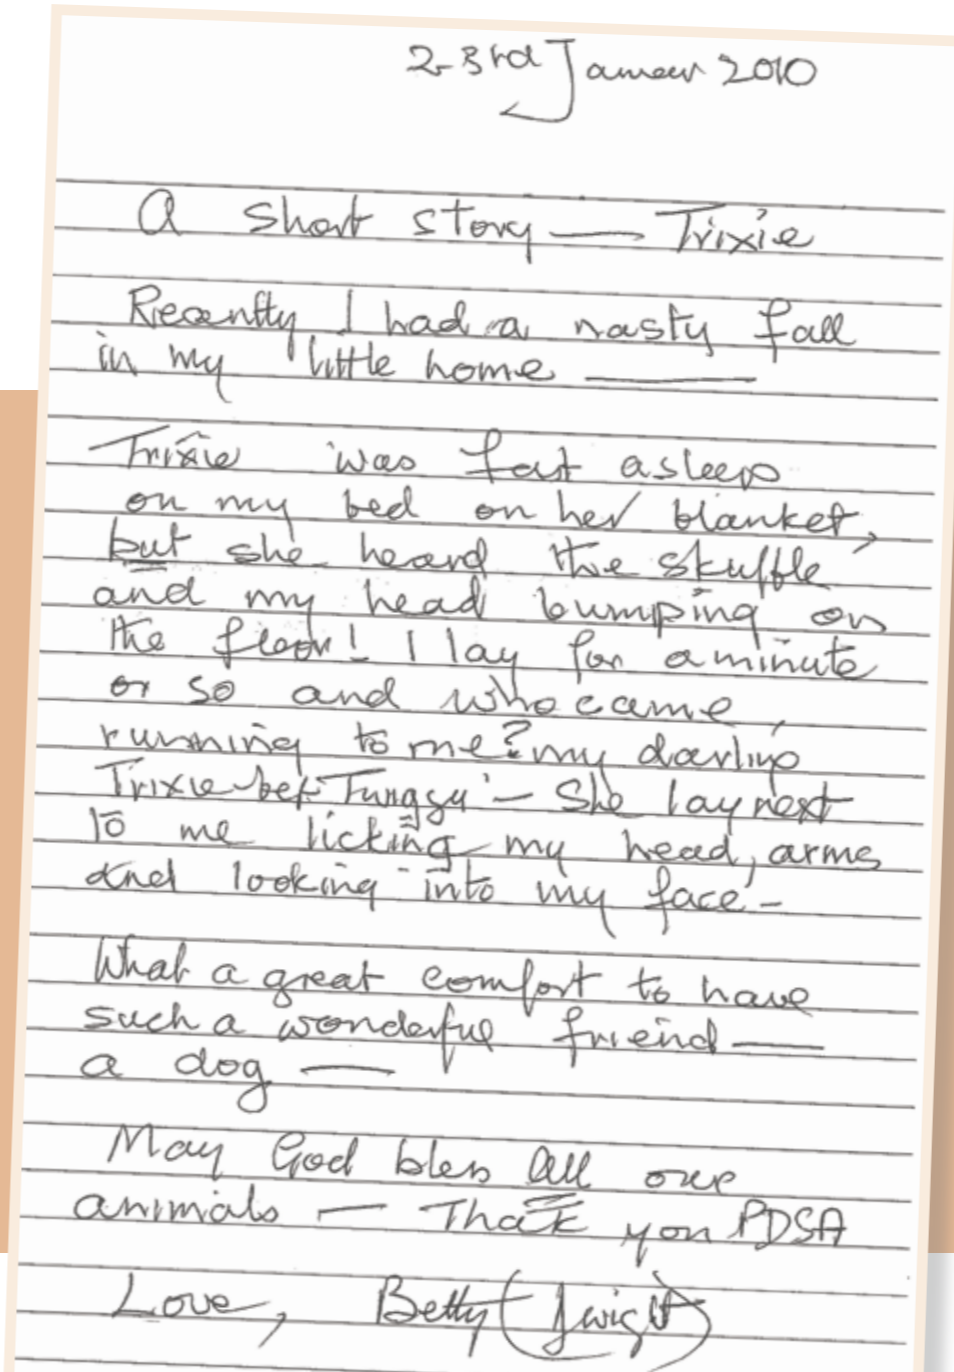 2-3rd January 2010
A short story — Trixie
Recently I had a nasty fall
in my little home —
Trixie was fast asleep
on my bed on her blanket,
but she heard the skuffle
and my head bumping on
the floor! I lay for a minute
or so and who came
running to me? my darling
Trixie - She lay next
to me licking my head, arms
and looking into my face -
What a great comfort to have
such a wonderful friend —
a dog —
May God bless all our
animals — Thank you PDSA
Love, Betty